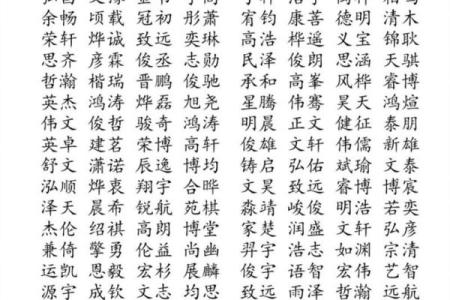 余畅 顷载 冠初 彤萧 宥钧 康善 德明 清木
荣轩 烨诚 致远 奕琳 高浩 桦遥 义宝 锦耿
思齐 彦霖 晋丞 志勋 民泽 俊朗 思涵 天骐
哲瀚 楷瑞 晋鹏 俊驰 承和 高峯 风桦 睿博
英杰 鸿涛 烨磊 旭尧 星腾 伟骞 昊天 鸿煊
伟文 俊哲 骏奇 鸿涛 明晨 正文 健征 泰朋
英卓 建茗 荣博 高轩 俊雄 文轩 伟儒 新雄
舒文 潇诺 辰逸 博均 铸启 弘佑 斌瑜 泰文
泓顺 烨衷 翔宇 合晔 文昊 致远 睿博 博宸
泽天 晨希 锐航 苑棋 淼靖 峻俊 明浩 若奕
杰伦 绍祺 高朗 博堂 家楚 润盛 文轩 弘彦
兼倚 擎勇 伦益 尚幽 羿宇 浩志 如渊 宗清
运凯 恩毅 宏杉 展麟 俊宇 语智 宏伟 艺智
源宇 成钦 文志 均思 浩高 雨泽 瀚宇 远航